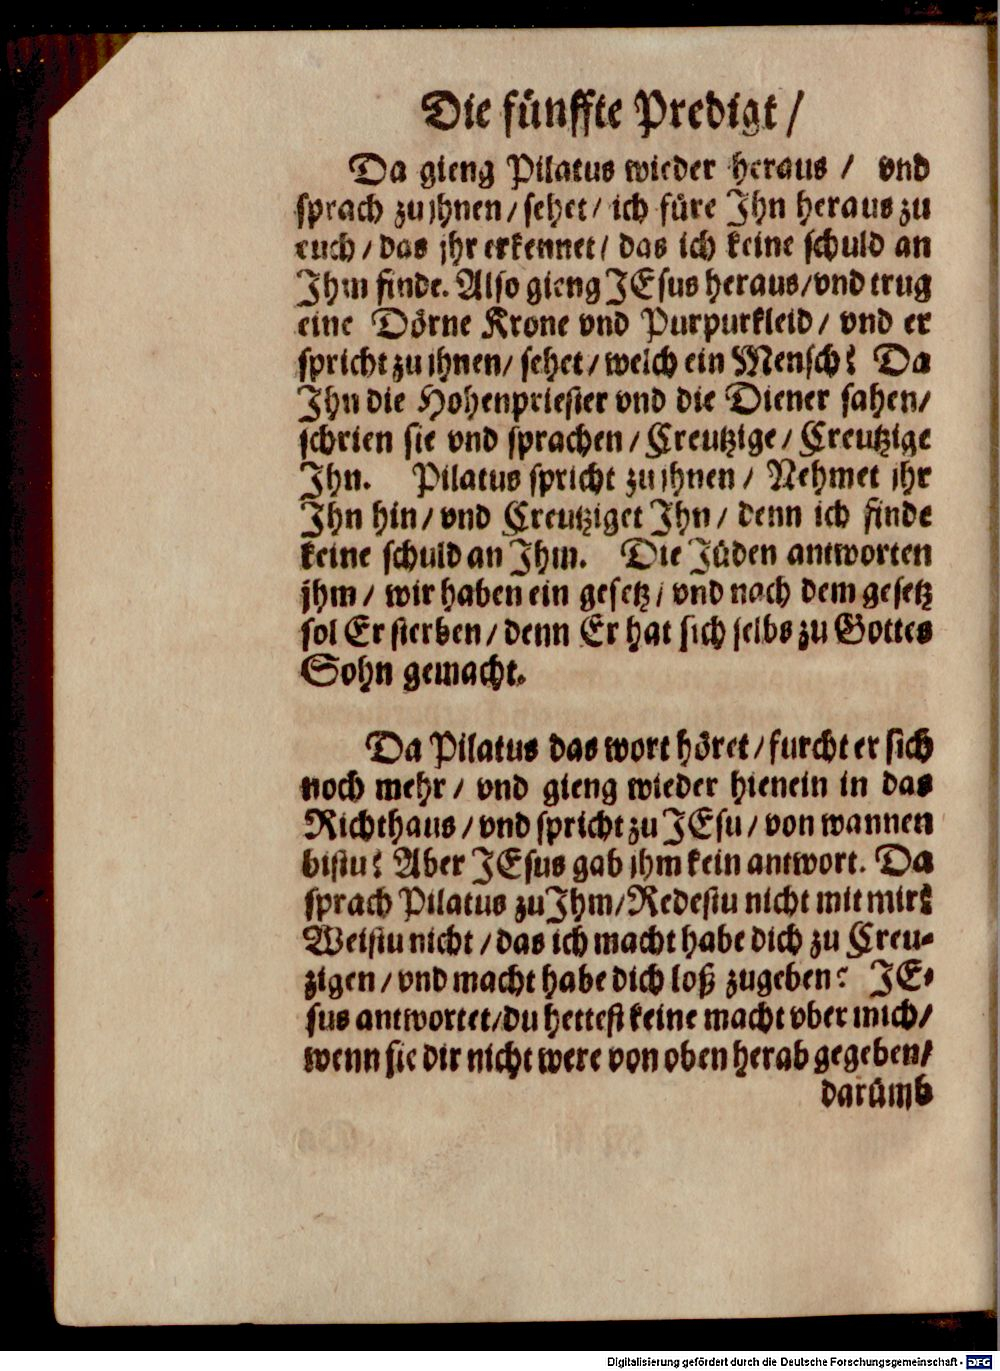 Die fünffte Predigt /
Da gieng Pilatus wieder heraus / vnd
sprach zu jhnen / sehet / ich füre Ihn heraus zu
euch / das jhr erkennet / das ich keine schuld an
Ihm finde. Also gieng JEsus heraus / vnd trug
eine Dörne Krone vnd Purpurkleid / vnd er
spricht zu jhnen / sehet / welch ein Mensch? Da
Ihn die Hohenpriester vnd die Diener sahen /
schrien sie vnd sprachen / Creutzige / Creutzige
Ihn. Pilatus spricht zu jhnen / Nehmet jhr
Ihn hin / vnd Creutziget Ihn / denn ich finde
keine schuld an Ihm. Die Jüden antworten
jhm / wir haben ein gesetz / vnd nach dem gesetz
sol Er sterben / denn Er hat sich selbs zu Gottes
Sohn gemacht.
Da Pilatus das wort höret / furcht er sich
noch mehr / vnd gieng wieder hienein in das
Richthaus / vnd spricht zu JEsu / von wannen
bistu? Aber JEsus gab jhm kein antwort. Da
sprach Pilatus zu Ihm / Redestu nicht mit mir?
Weistu nicht / das ich macht habe dich zu Creu-
zigen / vnd macht habe dich loß zugeben? JE-
sus antwortet / du hettest keine macht vber mich /
wenn sie dir nicht were von oben herab gegeben /
darümb
Digitalisierung gefördert durch die Deutsche Forschungsgemeinschaft - DFG